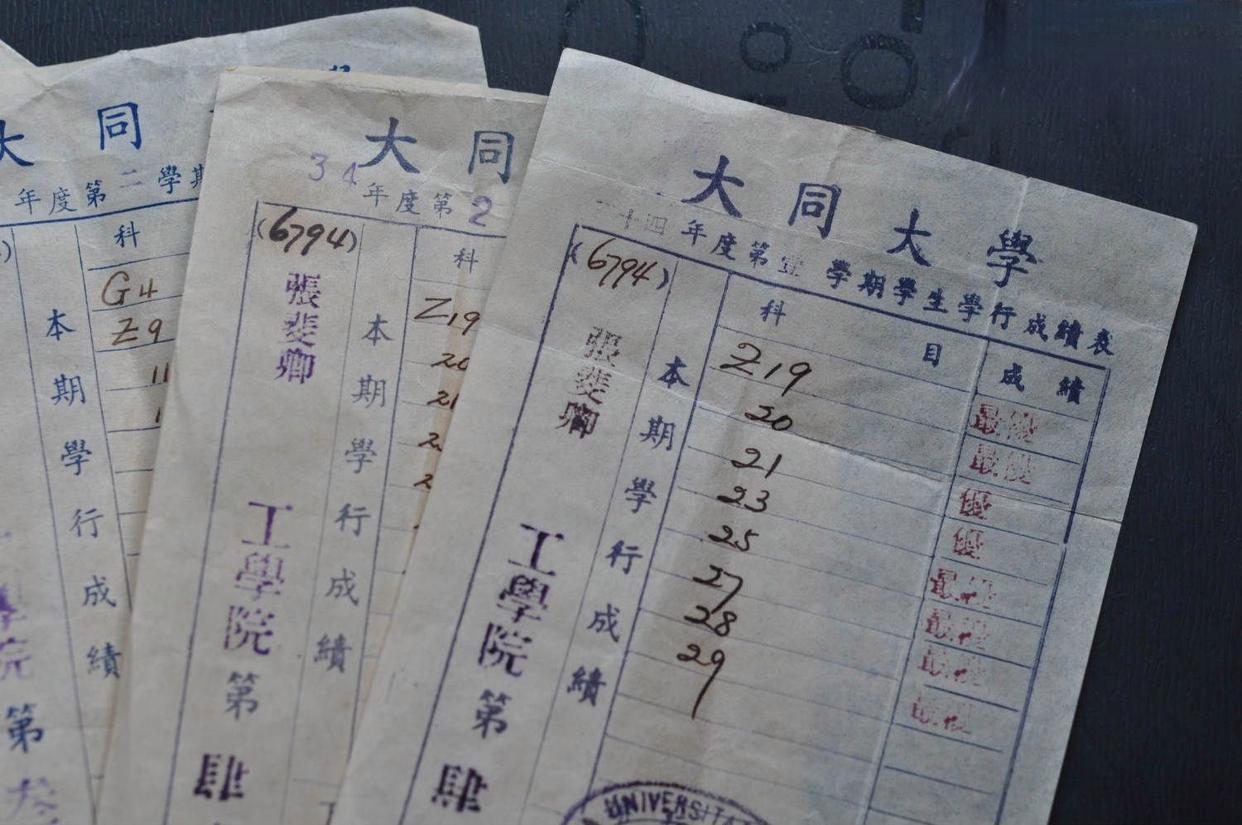 大同
年度第二學期
科
G4
Z9
11
本期學行成績
第叁
大同
34年度第2
(6794)
張斐卿
工學院第肆
本期學行成績
科
Z19
20
21
大同大學
十四年度第壹學期學生學行成績表
(6794)
張斐卿
工學院第肆
本期學行成績
科目 成績
Z19 最優
20 最優
21 優
23 優
25 最優
27 最優
28 最優
29 最優
UNIVERSITA